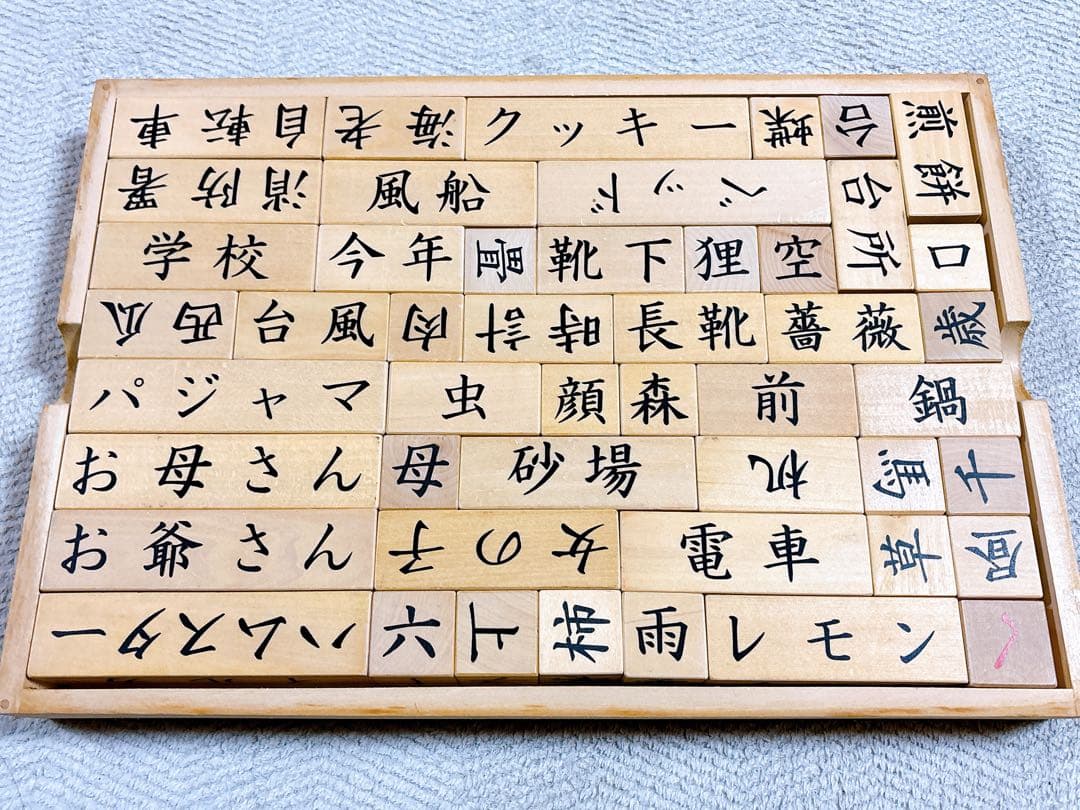 自転車 海老 クッキー 蝶 煎餅
消防署 風船 ベッド 台所
学校 今年 靴下 狸 空 口
西瓜 台風 肉 時計 長靴 薔薇 歳
パジャマ 虫 顔 森 前 鍋
お母さん 母 砂場 机 馬 千
お爺さん 女の子 電車 草
ハムスター 六 上 柿 雨 レモン